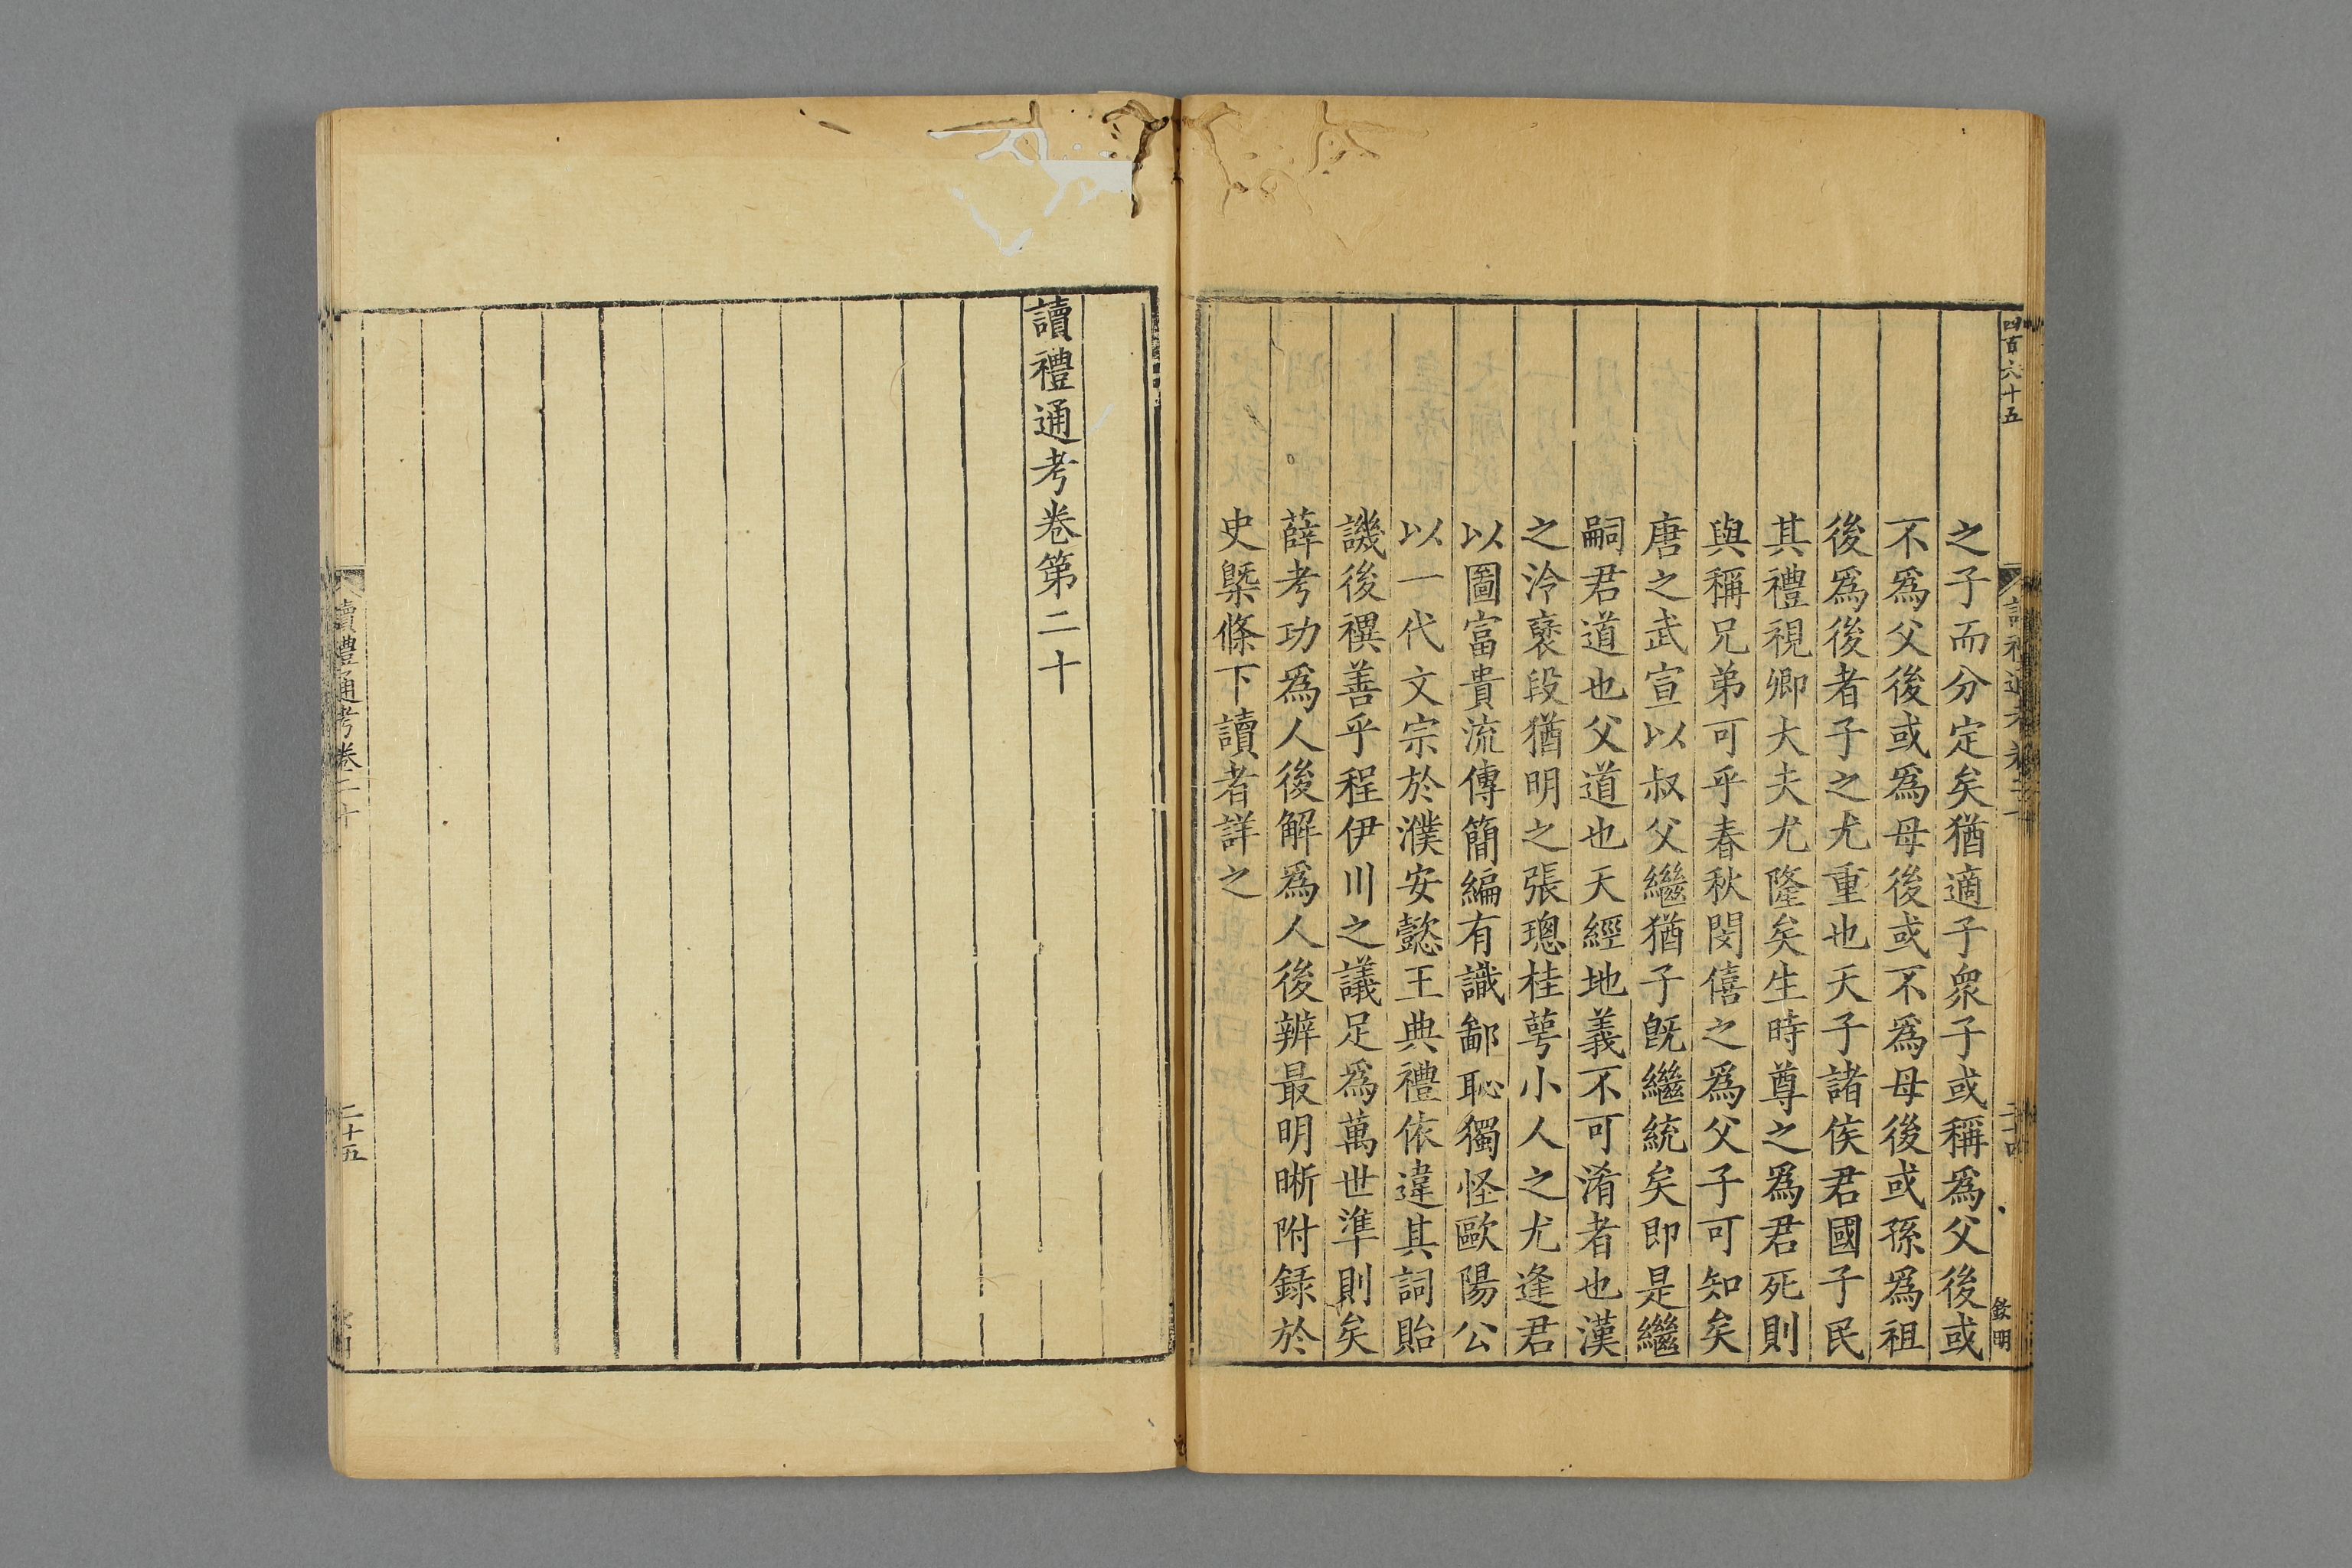 四百六十五
讀禮通考卷二十
二十四
欽明
之子而分定矣猶適子衆子或稱爲父後或
不爲父後或爲母後或不爲母後或孫爲祖
後爲後者子之尤重也天子諸侯君國子民
其禮視卿大夫尤隆矣生時尊之爲君死則
與稱兄弟可乎春秋閔僖之爲父子可知矣
唐之武宣以叔父繼猶子旣繼統矣即是繼
嗣君道也父道也天經地義不可淆者也漢
之泠襃段猶明之張璁桂萼小人之尤逢君
以圖富貴流傳簡編有識鄙恥獨怪歐陽公
以一代文宗於濮安懿王典禮依違其詞貽
譏後禩善乎程伊川之議足爲萬世準則矣
薛考功爲人後解爲人後辨最明晰附録於
史槩條下讀者詳之
讀禮通考卷第二十
讀禮通考卷二十
二十五